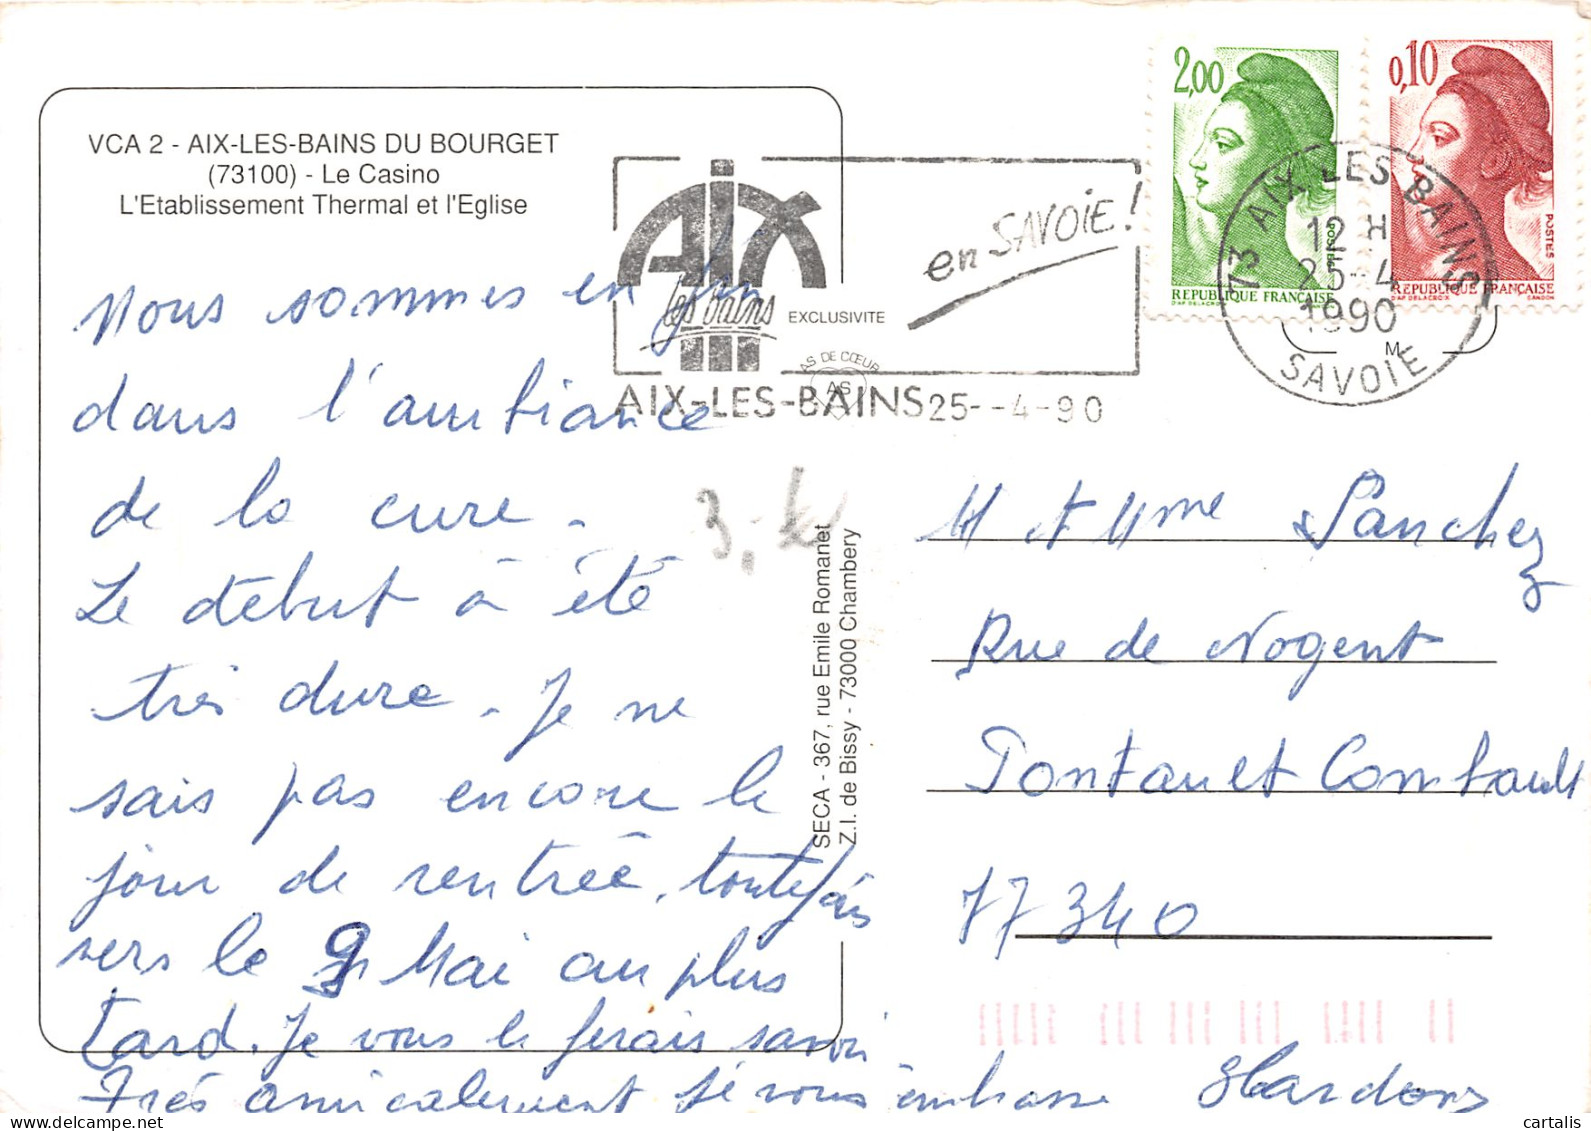 VCA 2 - AIX-LES-BAINS DU BOURGET
(73100) - Le Casino
L'Etablissement Thermal et l'Eglise
AIX
les bains
EXCLUSIVITE
en SAVOIE !
AS DE CŒUR
AS
AIX-LES-BAINS 25--4-90
2,00
POSTES
REPUBLIQUE FRANÇAISE
D'AP DELACROIX
0,10
POSTES
REPUBLIQUE FRANÇAISE
D'AP DELACROIX GANDON
73 AIX LES BAINS
12 H
25-4
1990
SAVOIE
M
Nous sommes en
dans l'ambiance
de la cure.
Le début à été
très dure. Je ne
sais pas encore le
jour de rentrée, toutefois
vers le 9 Mai au plus
tard. Je vous le ferais savoir
Très amicalement je vous embrasse
3,-
SECA - 367, rue Emile Romanet
Z.I. de Bissy - 73000 Chambery
M et Mme Sanchez
Rue de Nogent
Pontault Combault
77340
delcampe.net
cartalis